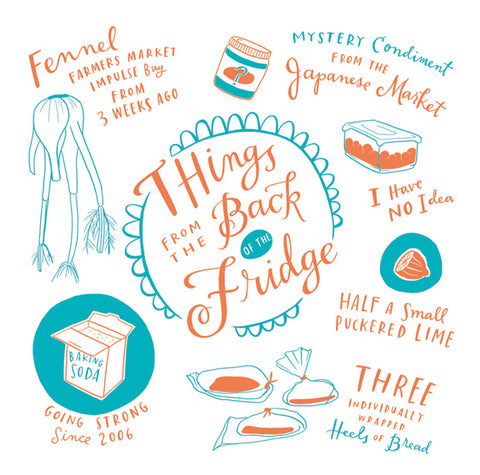 Fennel
FARMERS MARKET
IMPULSE Buy
FROM
3 WEEKS AGO
?
MYSTERY Condiment
FROM THE
Japanese Market
THings
FROM
THE Back
OF THE
Fridge
I Have
NO Idea
HALF A Small
PUCKERED LIME
BAKING
SODA
GOING STRONG
Since 2006
THREE
INDIVIDUALLY
WRAPPED
Heels OF Bread